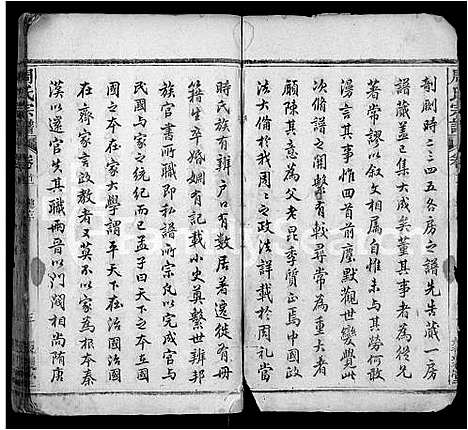 剞劂時二三四五各房之譜先告蕆一房
譜蕆蓋已集大成矣董其事者為從兄
著常謬以叙文相屬自惟未與其勞何敢
漫言其事惟四首前塵默觀世變覺此
次譜之開繫有較尋常為重大者
願陳其意為父老昆季質正焉中國政
法莫古於我周周之政法詳載於周禮當
時氏族有辨户口有數居著遷徙有冊
籍生卒婚姻有記載小史奠繫世辨邦
族官書所職即私譜所宗民以完成官
民國與家之統紀而已孟子四天下之本在
國國之本在家大學謂平天下在治國治國
在齊家言政教者又莫不以家為根本秦
漢以還官失其職兩晉以門閥相尚隋唐
周氏宗譜